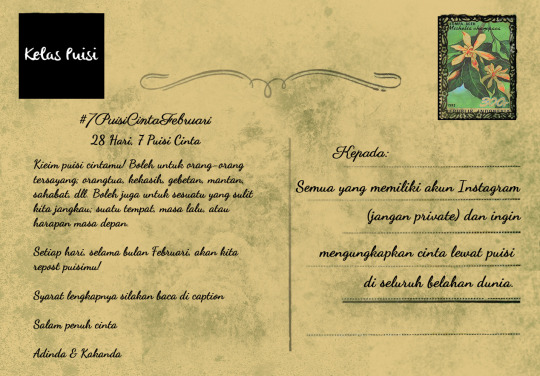 Kelas Puisi
Michelia champaca
300
REPUBLIK INDONESIA
#7PuisiCintaFebruari
28 Hari, 7 Puisi Cinta
Kieim puisi cintamu! Boleh untuk orang-orang
tersayang, orangtua, kekasih, gebetan, mantan,
sahabat, dll. Boleh juga untuk sesuatu yang sulit
kita jangkau; suatu tempat, masa lalu, atau
harapan masa depan.
Setiap hari, selama bulan Februari, akan kita
repost puisimu!
Syarat lengkapnya silakan baca di caption
Salam penuh cinta
Adinda & Kakanda
Kepada:
Semua yang memiliki akun Instagram
(jangan private) dan ingin
mengungkapkan cinta lewat puisi
di seluruh belahan dunia.